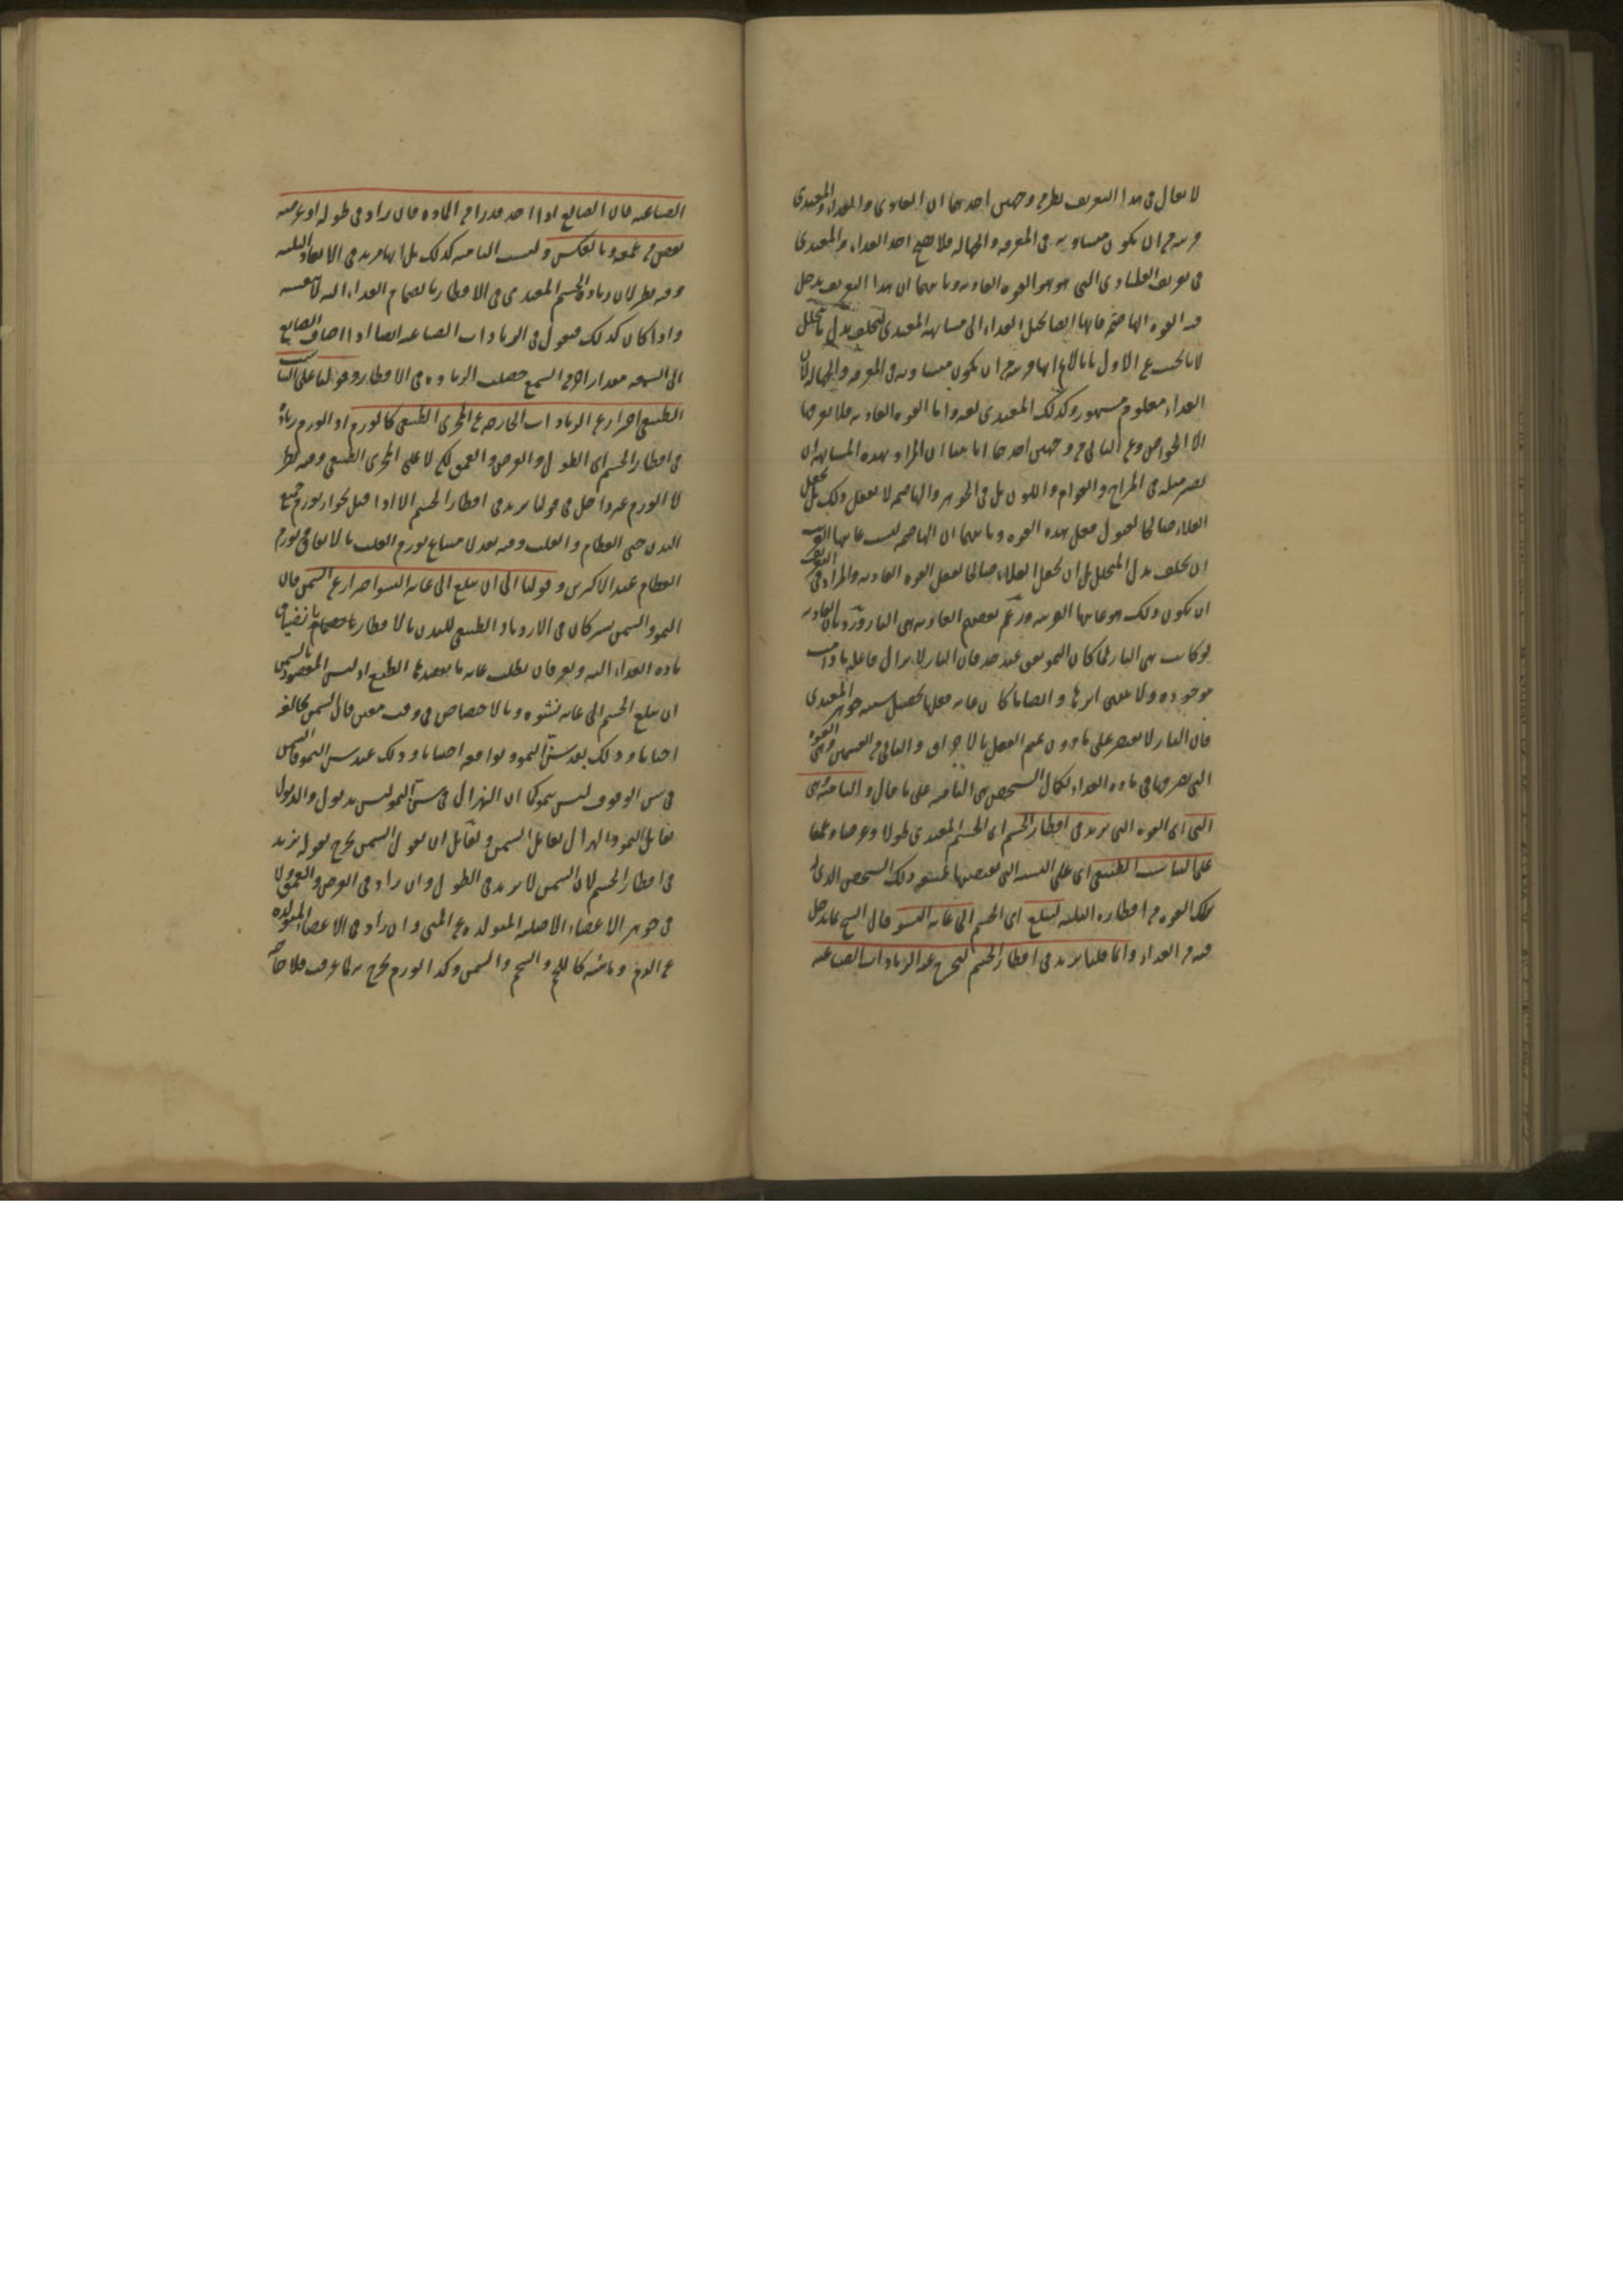 لا يقال فى هذا التعريف نظر من وجهين احدهما ان الغاذى والغذاء والمغتذى
قريبة من ان يكون متساوية فى المعرفة والجهالة فلا يصح اخذ الغذاء والمغتذى
فى تعريف القوة الغاذية وثانيهما ان هذا التعريف يدخل
فيه القوة الهاضمة فانها ايضا تحيل الغذاء الى مشابهة المغتذى ليخلف بدل ما يتحلل
لانا نجيب عن الاول بانا لا نم انها قريبة من ان يكون متساوية فى المعرفة والجهالة لان
الغذاء معلوم مشهور وكذلك المغتذى لغة واما القوة الغاذية فلا يعرفها
الا الخواص وعن الثانى من وجهين احدهما انا بينا ان المراد بهذه المشابهة ان
يصير مثله فى المزاج والقوام واللون بل فى الجوهر والهاضمة لا تفعل ذلك بل تجعل
الغذاء صالحا لقبول فعل هذه القوة وثانيهما ان الهاضمة ليست غايتها القريبة
ان يخلف بدل المتحلل بل ان تجعل الغذاء صالحا لفعل القوة الغاذية والمراد فى التعريف
ان يكون ذلك هو غايتها القريبة وزعم بعضهم الغاذية هى النار ورد بان الغاذية
لو كانت هى النار لما كان النمو يقف عند حد فان النار لا يزال فاعلة ما دامت
موجودة ولا يقف اثرها وايضا ما كان غاية فعلها تحصيل شبيه جوهر المغتذى
فان النار لا يقتصر على ما دون عمم الفعل بالاحراق والثانى من القسمين وهى القوة
التى تصرفها فى مادة الغذاء لكمال الشخص هى النامية على ما قال والنامية هى
التى اى القوة التى تزيد فى اقطار الجسم اى الجسم المغتذى طولا وعرضا وعمقا
على التناسب الطبيعى اى على النسبة التى تقتضيها طبيعة ذلك الشخص الذى له
تلك القوة من اقطاره الثلثة ليبلغ اى الجسم الى غاية النشو قال الشيخ بما يدخل
فيه من الغذاء وانما قلنا يزيد فى اقطار الجسم ليخرج عنه الزيادات الصناعية
الصناعية فان الصانع اذا اخذ قدرا من المادة فان زاد فى طوله او عرضه
نقص من عمقه وبالعكس وليست النامية كذلك بل انها تزيد فى الابعاد الثلثة
وفيه نظر لان زيادة الجسم المغتذى فى الاقطار بانضمام الغذاء اليه لا بنفسه
واذا كان كذلك فنقول فى الزيادات الصناعية ايضا اذا اضاف الصانع
الى الشمعة مقدارا اخر من الشمع حصلت الزيادة فى الاقطار وقولنا على التناسب
الطبيعى احتراز عن الزيادات الخارجة عن المجرى الطبيعى كالورم اذ الورم زيادة
فى اقطار الجسم اى الطول والعرض والعمق لكن لا على المجرى الطبيعى وفيه نظر
لان الورم غير داخل فى قولنا يزيد فى اقطار الجسم الا اذا قيل بجواز تورم جميع
البدن حتى العظام والقلب وفيه بعد لامتناع تورم القلب بالاتفاق وتورم
العظام عند الاكثرين وقولنا الى ان يبلغ الى غاية النشو احتراز عن السمن فان
النمو والسمن يشتركان فى الازدياد الطبيعى للبدن بالاقطار بانضمام ما ينضاف من
مادة الغذاء اليه ويفترقان بطلب غاية ما يقصدها الطبع اذ ليس المقصود بالسمن
ان يبلغ الجسم الى غاية نشوه وبالاختصاص فى وقت معين فان السمن يخالفه
احيانا وذلك بعد سن النمو ويوافقه احيانا وذلك عند سن النمو فالسمن
فى سن الوقوف ليس بنمو كما ان الهزال فى سن النمو ليس بذبول والذبول
يقابل النمو والهزال يقابل السمن ولقائل ان يقول السمن يخرج بقوله يزيد
فى اقطار الجسم لان السمن لا يزيد فى الطول وان زاد فى العرض والعمق ولا
فى جوهر الاعضاء الاصلية المتولدة عن المنى وان زاد فى الاعضاء المتولدة
عن الدم ومائيته كاللحم والشحم والسمن وكذا الورم يخرج به لما عرفت فلا حاجة